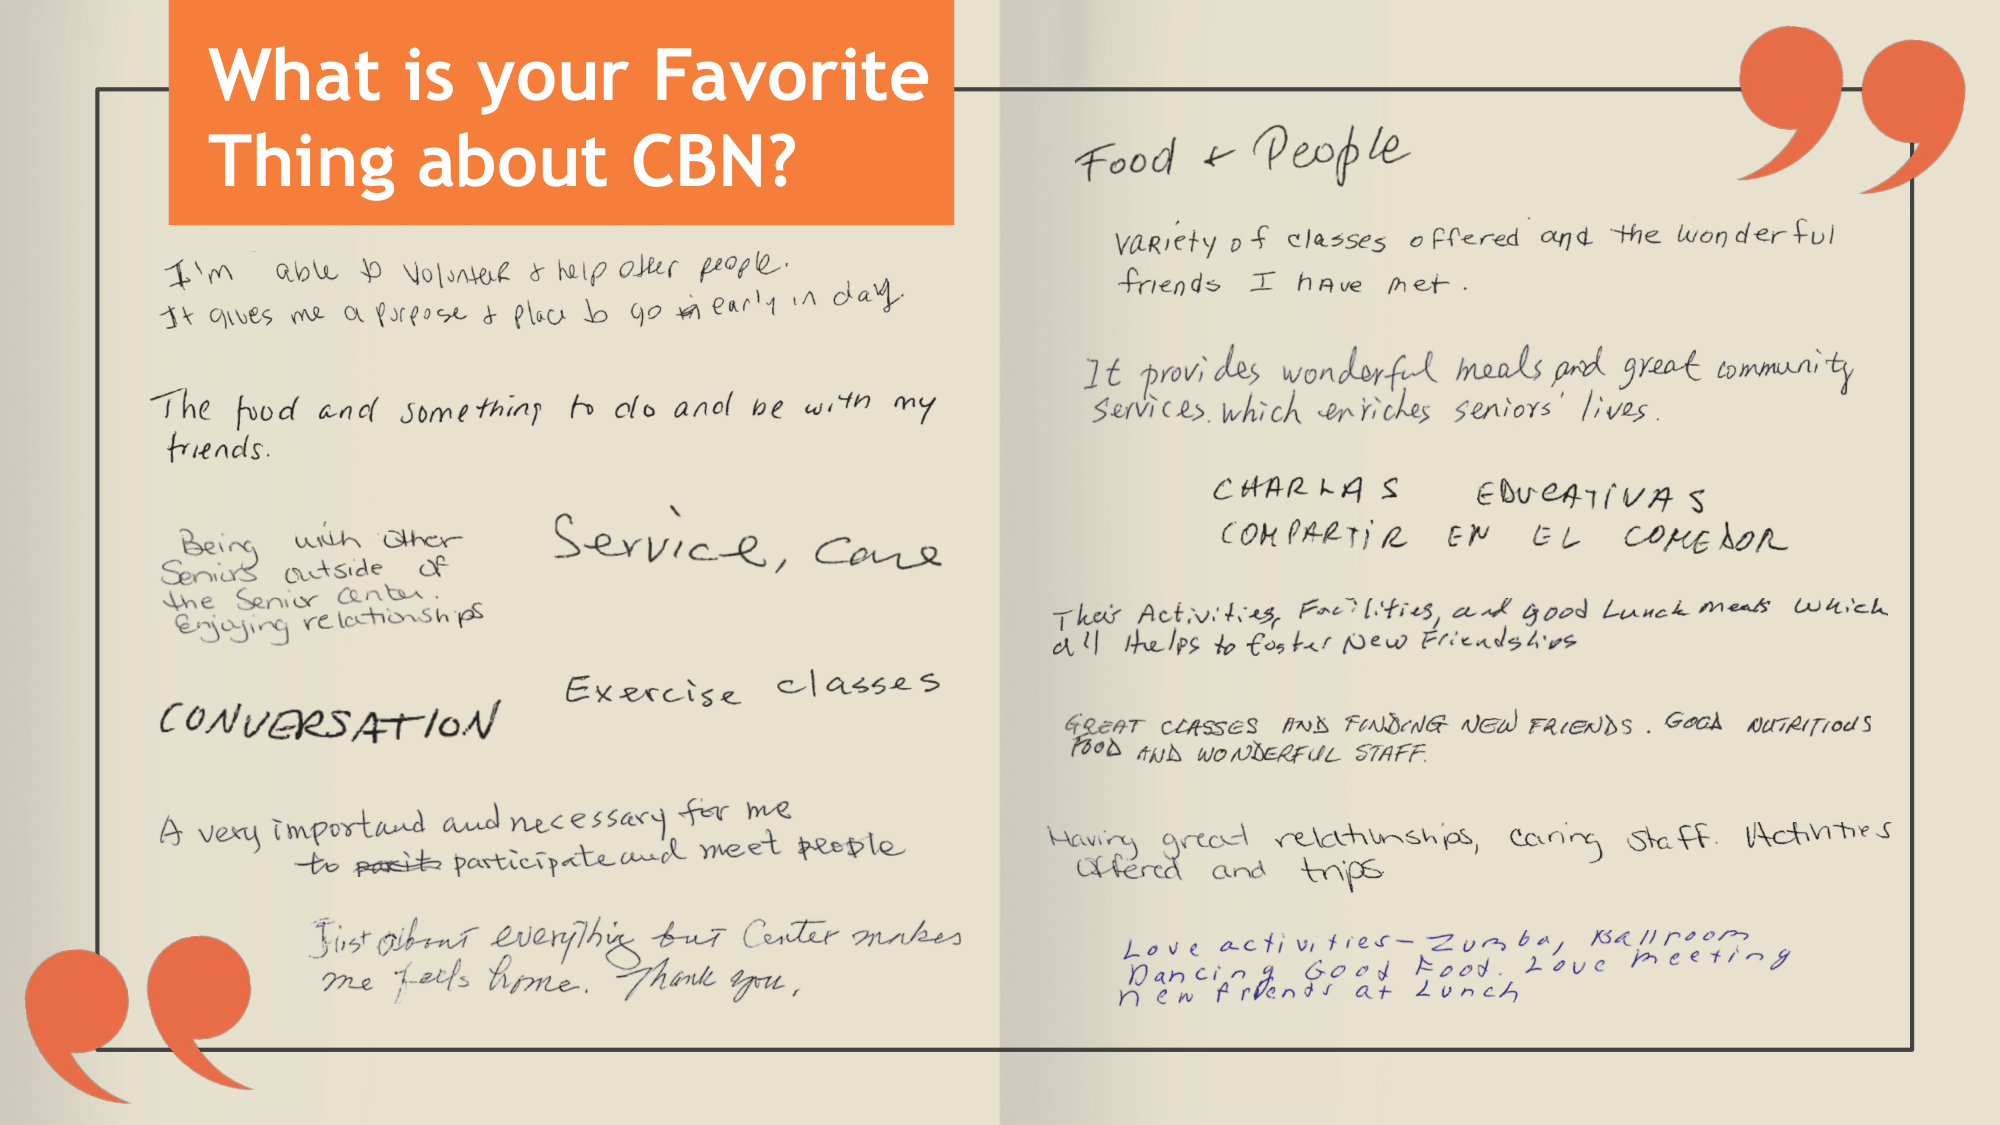 What is your Favorite
Thing about CBN?
I'm able to volunteer & help other people.
It gives me a purpose & place to go in early in day.
The food and something to do and be with my
friends.
Being with other
Seniors outside of
the Senior Center.
Enjoying relationships
Service, care
Exercise classes
CONVERSATION
A very importand and necessary for me
to participate and meet people
Just about everything but Center makes
me feels home. Thank you,
Food + People
Variety of classes offered and the wonderful
friends I have met.
It provides wonderful meals and great community
services. which enriches seniors' lives.
CHARLAS EDUCATIVAS
COMPARTIR EN EL COMEDOR
Their Activities, Facilities, and good Lunch meals which
all Helps to foster New Friendships
GREAT CLASSES AND FINDING NEW FRIENDS. GOOD NUTRITIOUS
FOOD AND WONDERFUL STAFF.
Having great relationships, caring staff. Activities
offered and trips
Love activities - Zumba, Ballroom
Dancing Good Food. Love meeting
new friends at Lunch